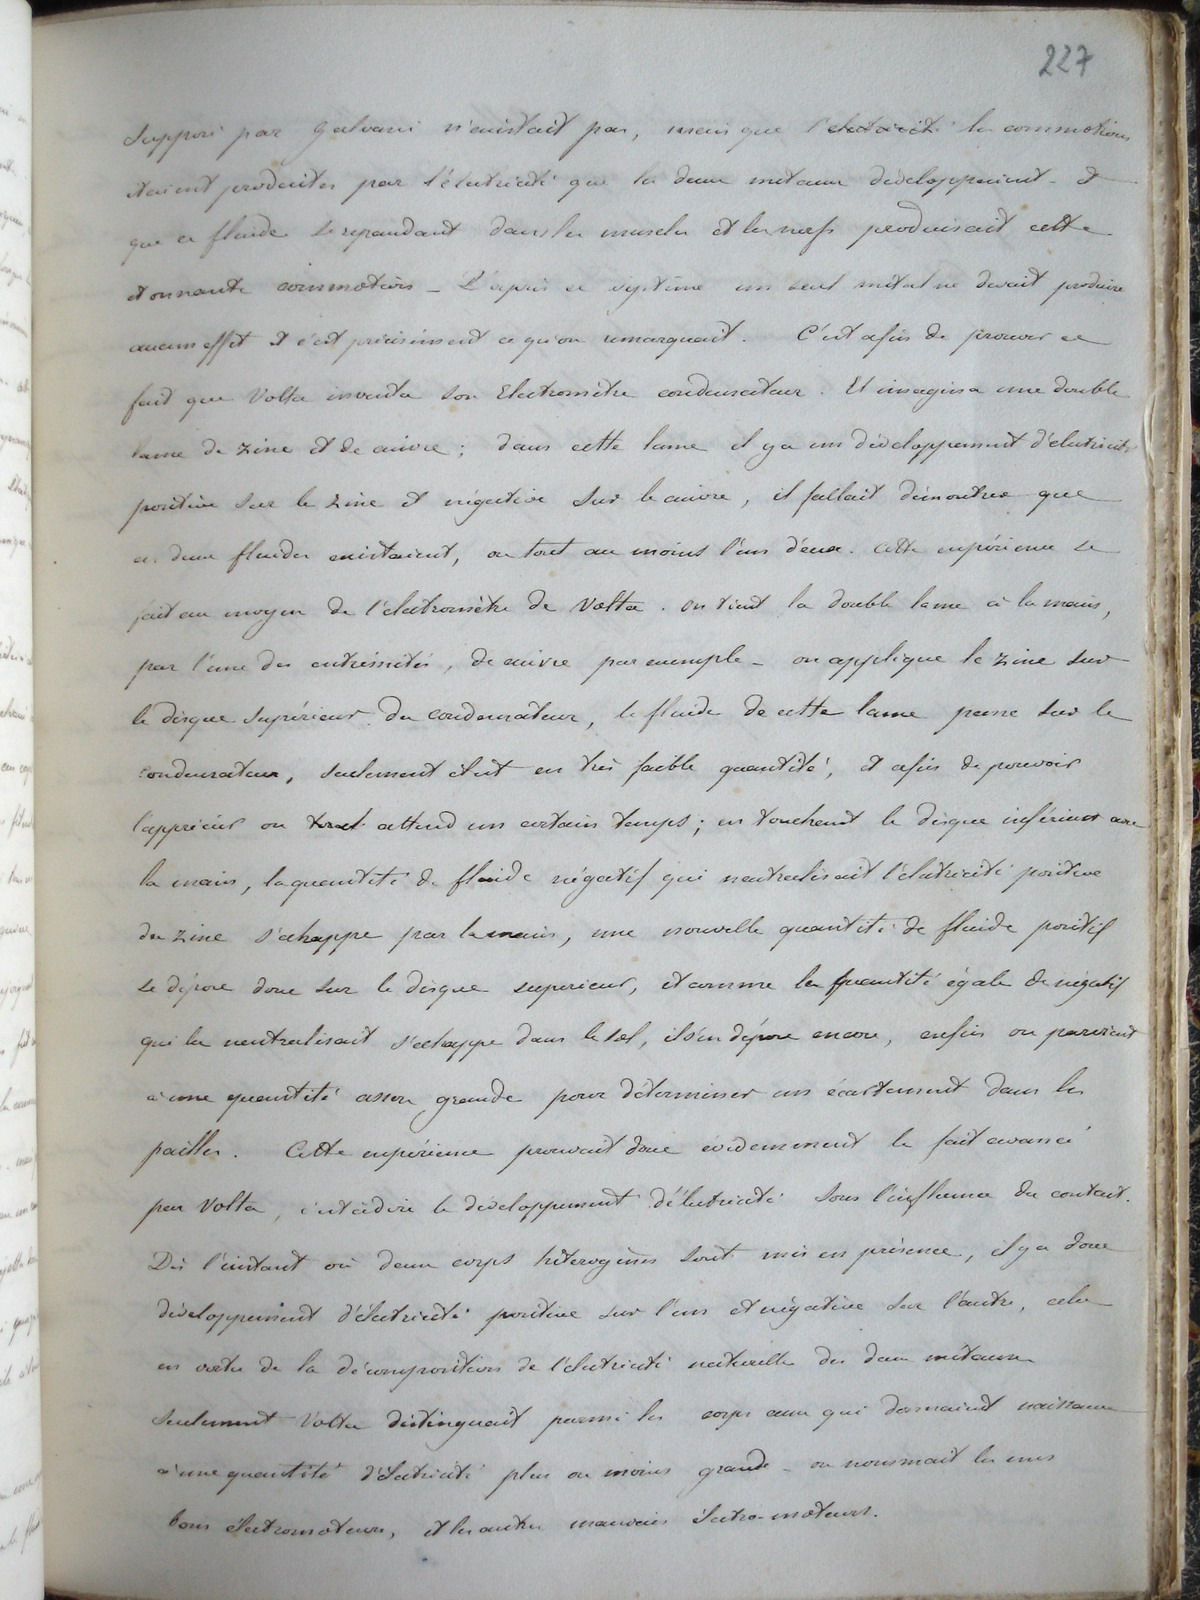 227
supposé par Galvani n'existait pas, mais que l'électricité les commotions
étaient produites par l'électricité que les deux métaux développaient - et
que ce fluide se repandant dans les muscles et les nerfs produisait cette
etonnante commotion - D'après ce système un seul métal ne devait produire
aucun effet et c'est précisément ce qu'on remarquait. C'est afin de prouver ce
fait que Volta inventa son Electromètre condensateur. Il imagina une double
lame de zinc et de cuivre ; dans cette lame il y a un développement d'électricité
positive sur le zinc et négative sur le cuivre, il fallait démontrer que
ces deux fluides existaient, ou tout au moins l'un d'eux. Cette expérience se
fait au moyen de l'électromètre de Volta. On tient la double lame à la main,
par l'une des extrémités, de cuivre par exemple - on applique le zinc sur
le disque supérieur du condensateur, le fluide de cette lame passe sur le
condensateur, seulement il est en très faible quantité, et afin de pouvoir
l'apprécier on attend un certain temps ; en touchant le disque inférieur avec
la main, la quantité de fluide négatif qui neutralisait l'électricité positive
du zinc s'échappe par la main, une nouvelle quantité de fluide positif
se dépose donc sur le disque superieur, et comme la quantité égale de négatif
qui la neutralisait s'echappe dans le sol, il s'en dépose encore, enfin on parvient
à une quantité assez grande pour déterminer un écartement dans les
pailles. Cette expérience prouvait donc évidemment le fait avancé
par Volta, c'est à dire le développement d'électricité sous l'influence du contact.
Dès l'instant où deux corps hétérogènes sont mis en présence, il y a donc
développement d'électricité positive sur l'un et négative sur l'autre, cela
en vertu de la décomposition de l'électricité naturelle des deux métaux
seulement Volta distinguait parmi les corps ceux qui donnaient naissance
à une quantité d'électricité plus ou moins grande - on nommait les uns
bons électromoteurs, et les autres mauvais électro-moteurs.